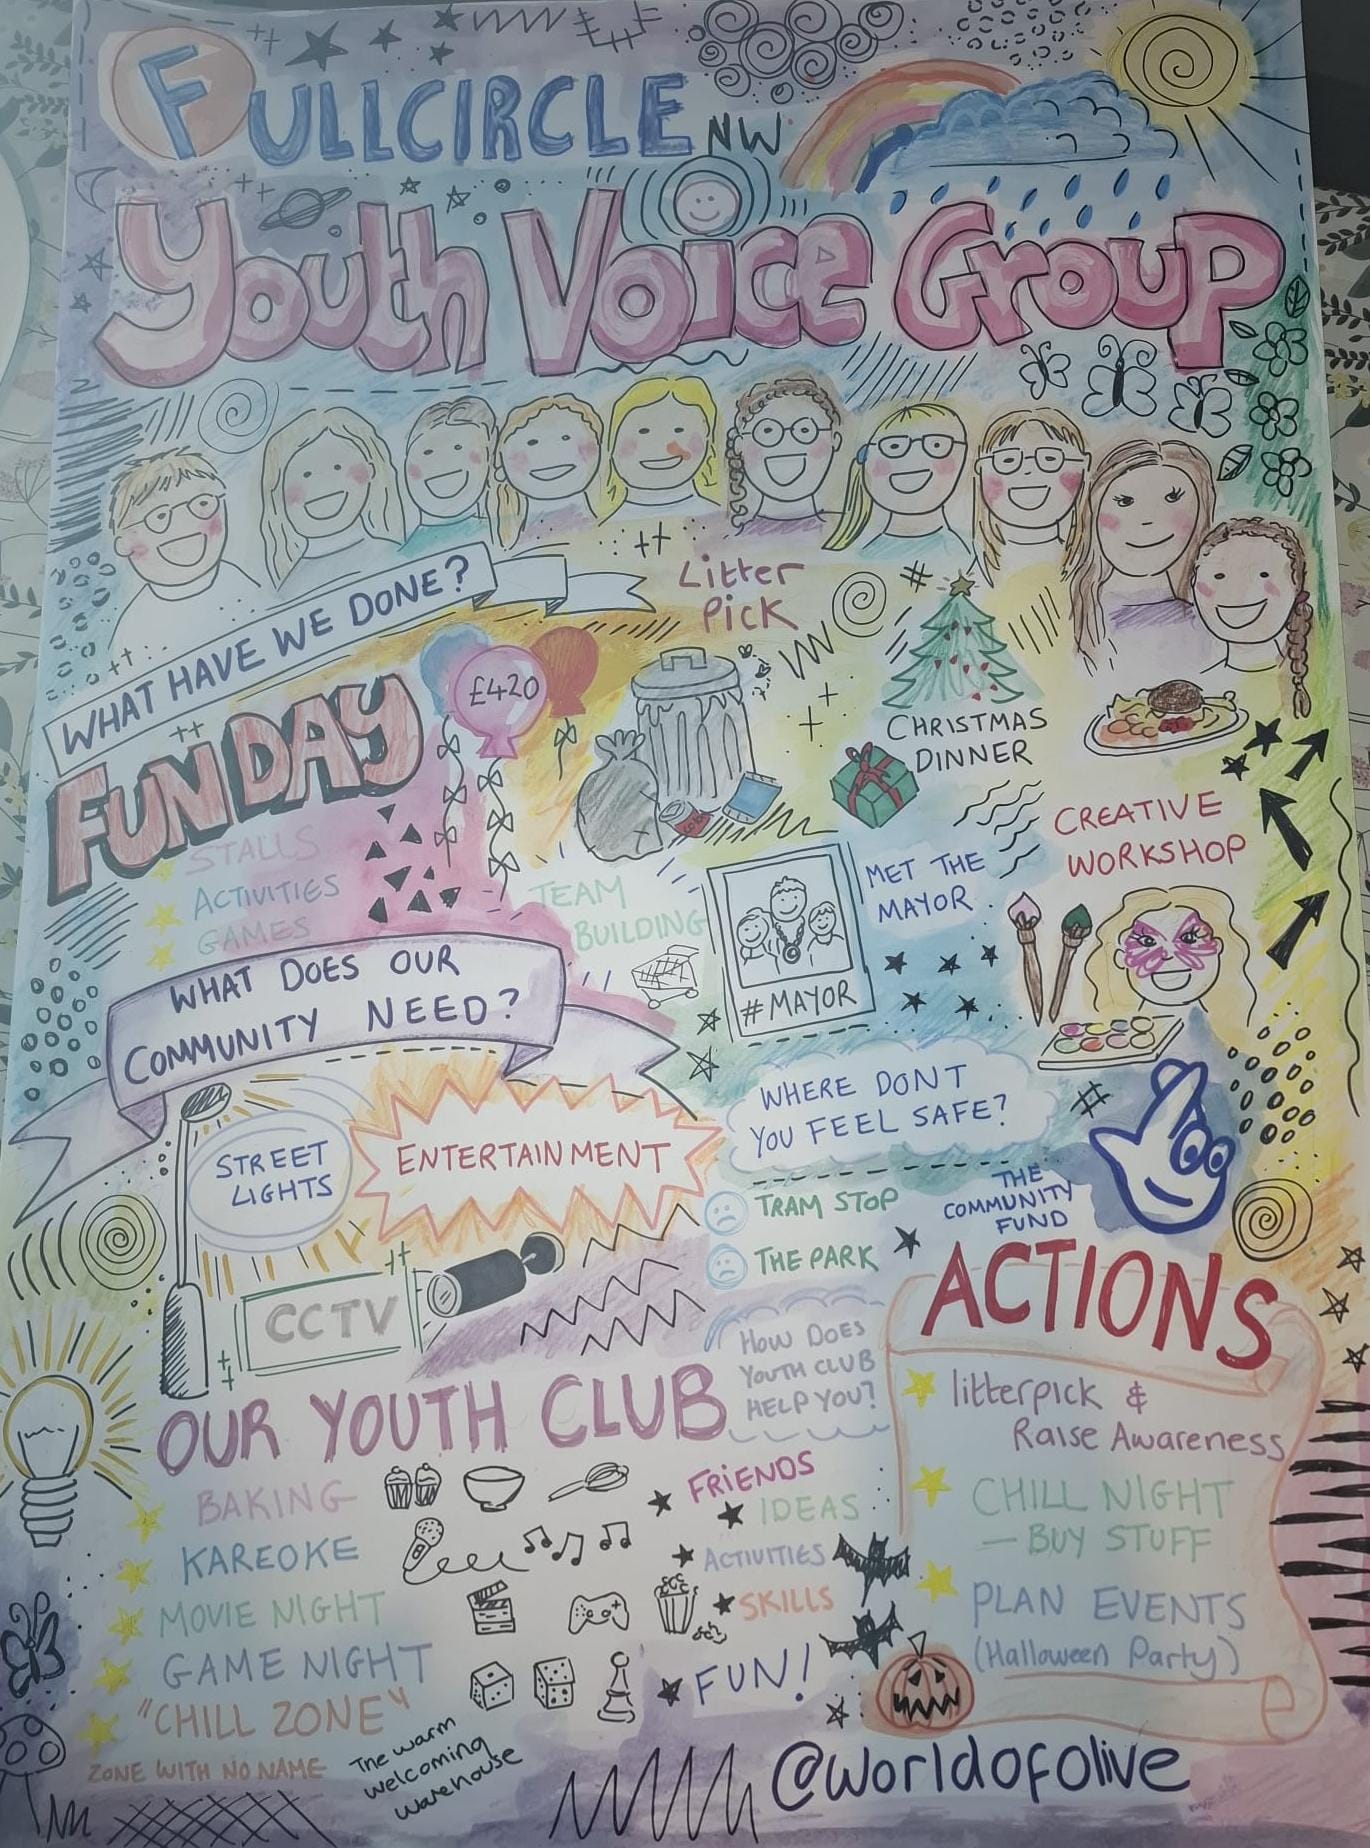 FULLCIRCLE NW
Youth Voice Group
WHAT HAVE WE DONE?
FUNDAY
£420
STALLS
ACTIVITIES
GAMES
Litter
Pick
TEAM
BUILDING
CHRISTMAS
DINNER
MET THE
MAYOR
#MAYOR
CREATIVE
WORKSHOP
WHAT DOES OUR
COMMUNITY NEED?
STREET
LIGHTS
ENTERTAINMENT
CCTV
WHERE DONT
YOU FEEL SAFE?
TRAM STOP
THE PARK
THE
COMMUNITY
FUND
OUR YOUTH CLUB
BAKING
KAREOKE
MOVIE NIGHT
GAME NIGHT
"CHILL ZONE"
ZONE WITH NO NAME
The warm
welcoming
warehouse
HOW DOES
YOUTH CLUB
HELP YOU?
FRIENDS
IDEAS
ACTIVITIES
SKILLS
FUN!
ACTIONS
litterpick &
Raise Awareness
CHILL NIGHT
- BUY STUFF
PLAN EVENTS
(Halloween Party)
@worldofolive